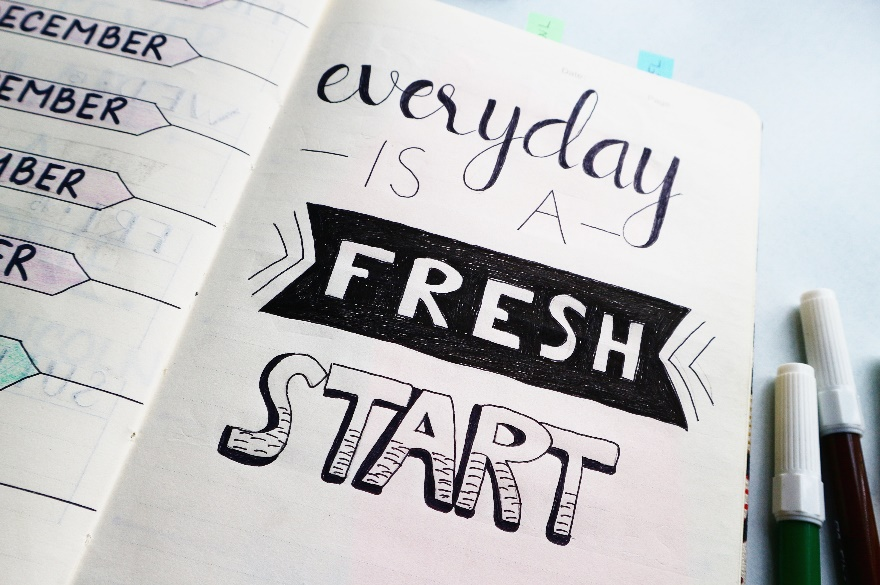 DECEMBER
EMBER
MBER
ER
everyday
IS
A
FRESH
START